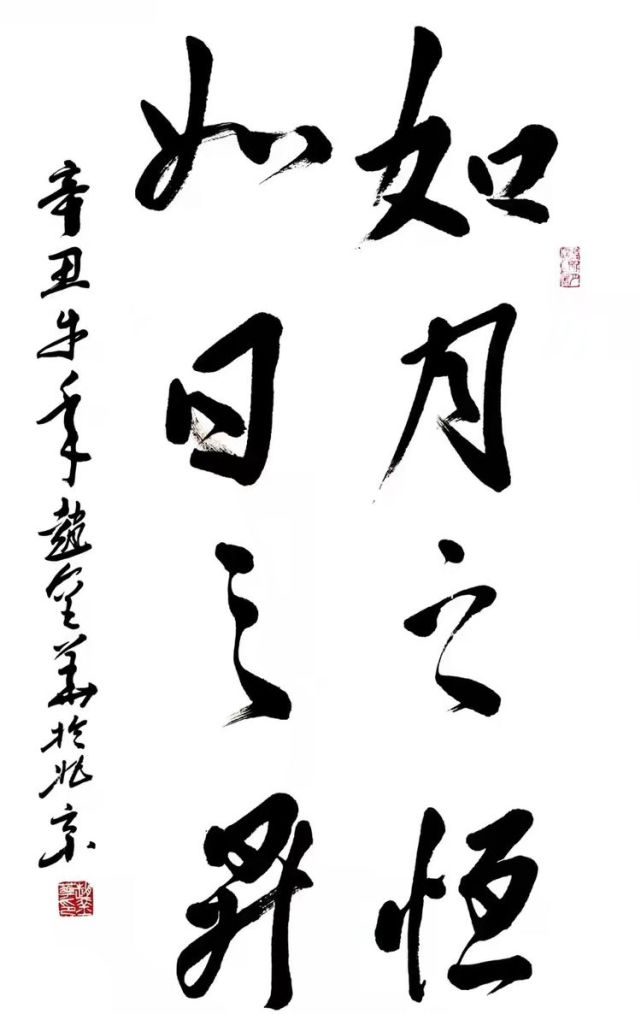 如月之恒
如日之昇
辛丑牛年赵全华於北京